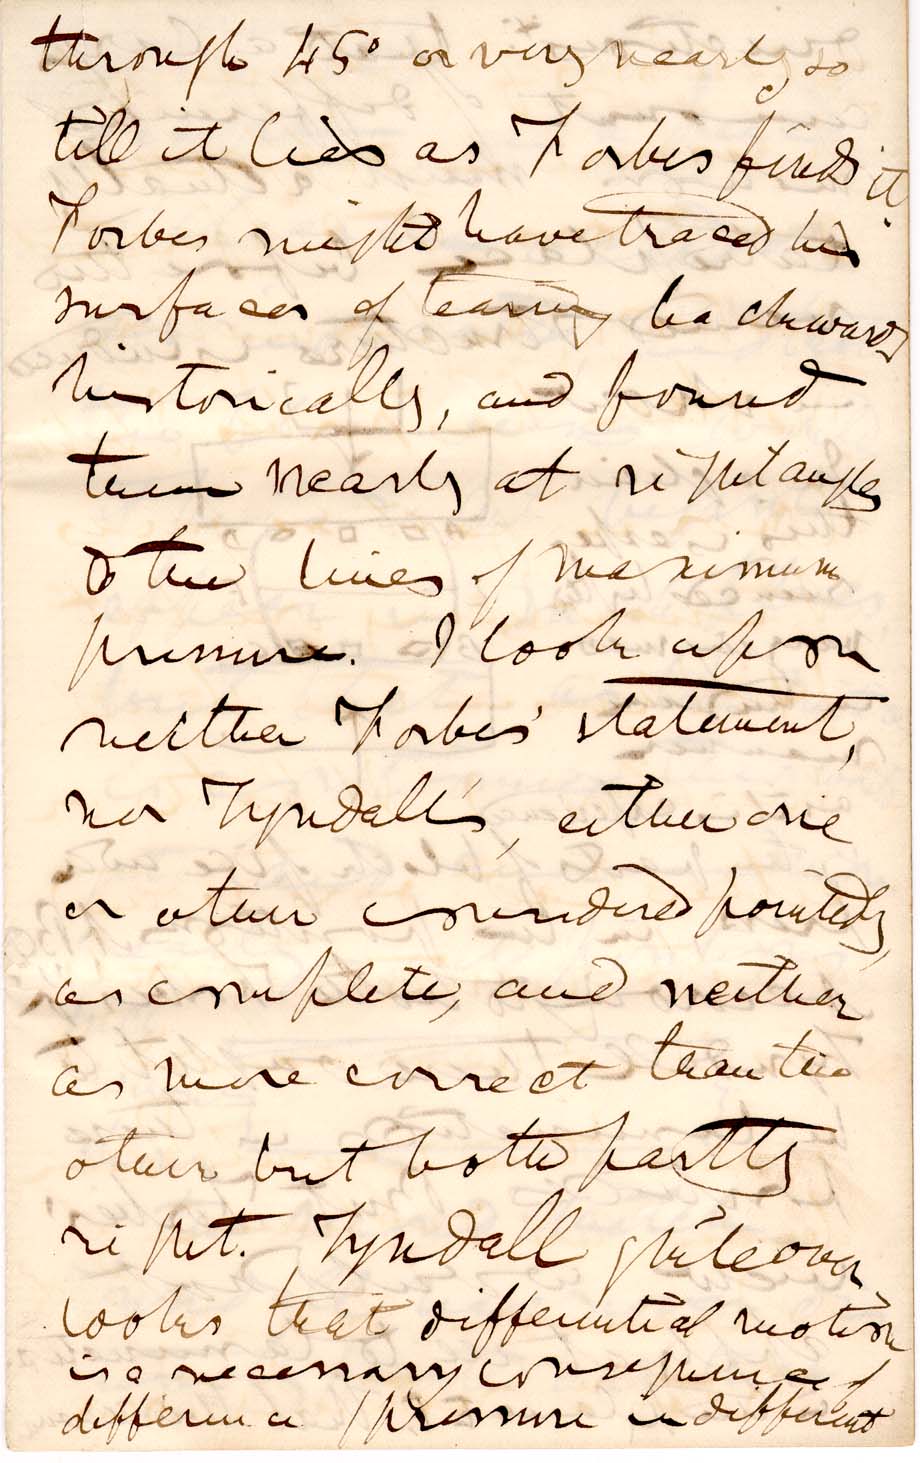 through 45° or very nearly so
till it lies as Forbes finds it.
Forbes might have traced his
surfaces of tearing backwards
historically, and found
them nearly at right angles
to the lines of maximum
pressure. I look upon
neither Forbes' statement,
nor Tyndall's, either one
or other considered pointedly,
as complete, and neither
as more correct than the
other but both partly
right. Tyndall quite over
looks that differential motion
is a necessary consequence of
difference of pressure in different